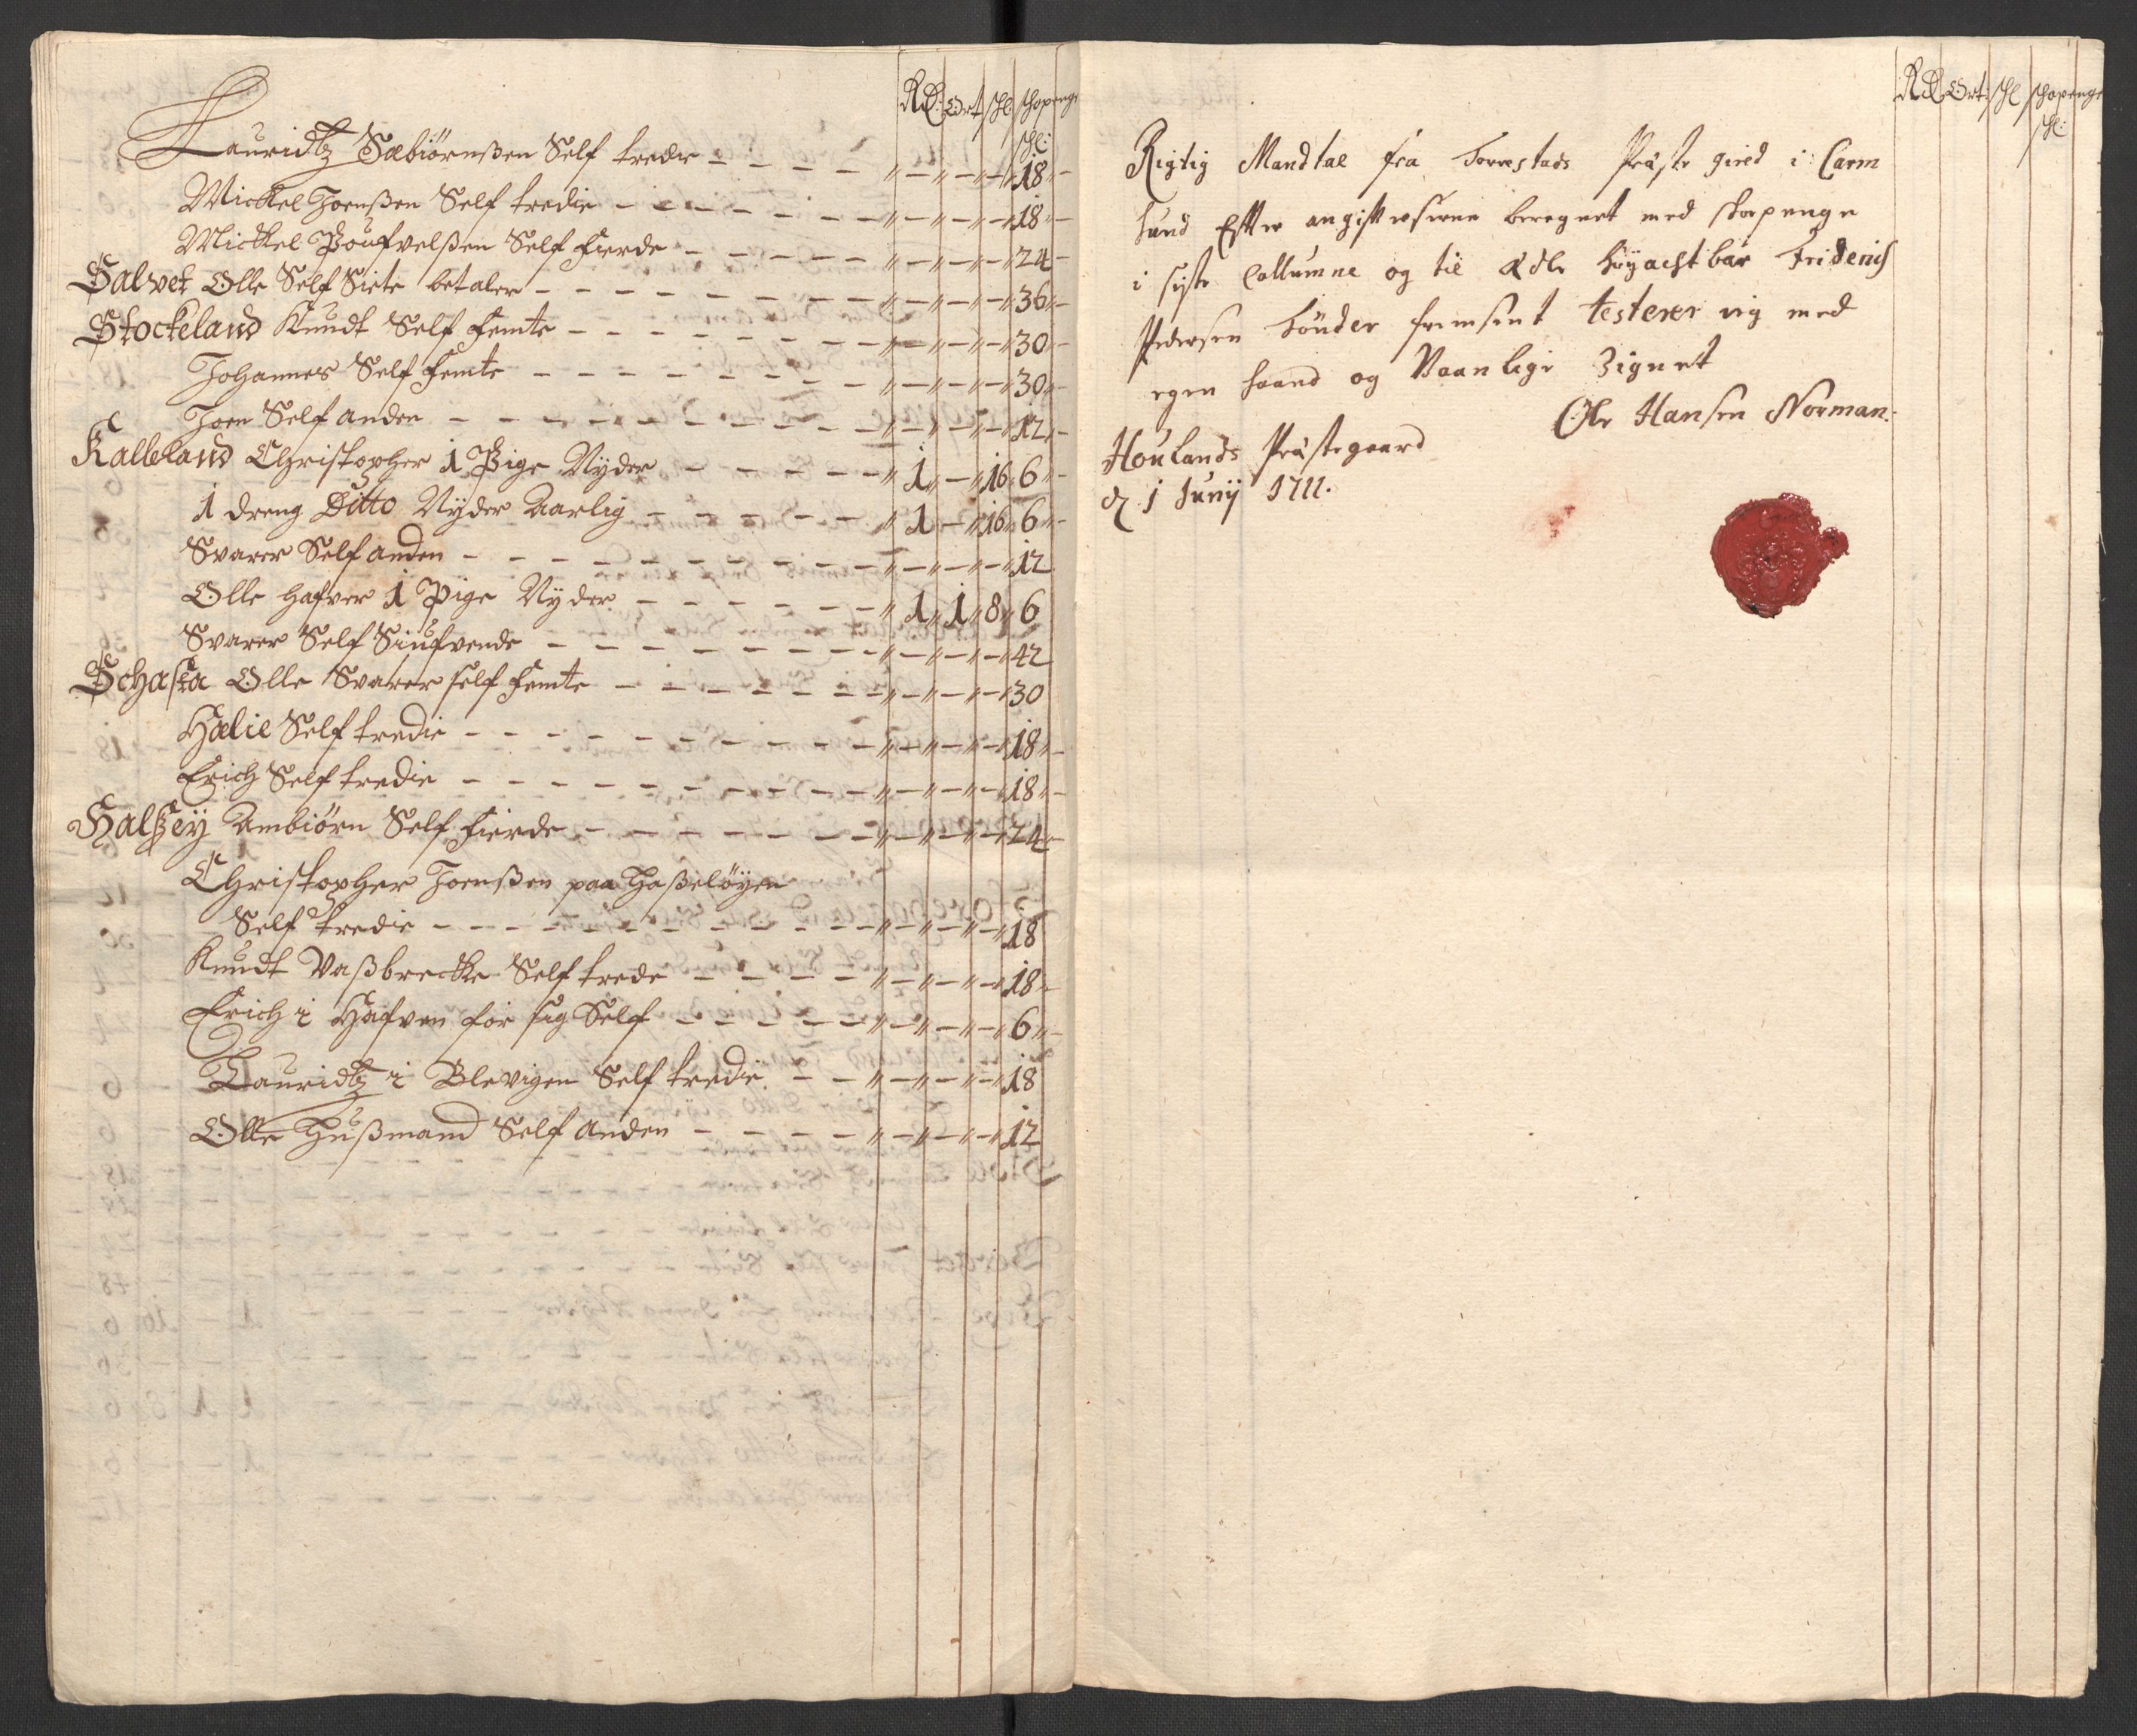 Rd: Ort schl schopenge
schl:
Lauridtz Sæbiørnßen Self tredie - - - - " - " - " - " 18 -
Mickel Joenßen Self tredie - - - - - - " - " - " - " 18 " -
Mickel Poufvelßen Self fierde - - - - - " - " - " - " 24 -
Salvet Olle Self Siete betaler - - - - - - - " - " - " - " 36 " -
Stockeland Knudt Self femte - - - - - - - " - " - " - " 30 " -
Johannes Self femte - - - - - - - - " - " - " - " 30 " -
Joen Self anden - - - - - - - - - " - " - " - " 12 " -
Kalleland Christopher 1 Pige Nyder - - - - - " 1 " - " 16 " 6 " -
1 dreng Ditto Nyder Aarlig - - - - - " 1 - " 16 " 6 " -
Svarer Self anden - - - - - - - - - " - " - " - " 12
Olle hafver 1 Pige Nyder - - - - - - " 1 " 1 " 8 " 6
Svarer Self Siufvende - - - - - - - - " - " - " - " 42
Schasta Olle Svarer self femte - - - - - - " - " - " - " 30
Hælie Self tredie - - - - - - - - - " - " - " - " 18 " -
Erich Self tredie - - - - - - - - - " - " - " - " 18 " -
Halßeÿ Ambiørn Self fierde - - - - - - - " - " - " - " 24 -
Christopher Joenßen paa Haßeløÿen
Self tredie - - - - - - - - - - - " - " - " - " 18
Knudt Vaßbrecke Self trede - - - - " - " - " - " 18 -
Erich i Hafven for sig Self - - - - - " - " - " - " 6 " -
Lauridtz i Blevigen Self tredie - - " - " - " - " 18
Olle Hußmand Self Anden - - - - " - " - " - " 12
Rd Ort schl schopenge
schl:
Rigtig Mandtal fra Torvestads Præste gield i Carm
sund Efter angifvelserne beregnet med skopenge
i siste Collumne og til Ædle høÿachtbar Friderich
Pedersen fremsent testerer ieg med
egen haand og Vaanlige Zignet
Ole Hansen Norman.
Houlands Præstegaard
d. 1 Junÿ 1711.